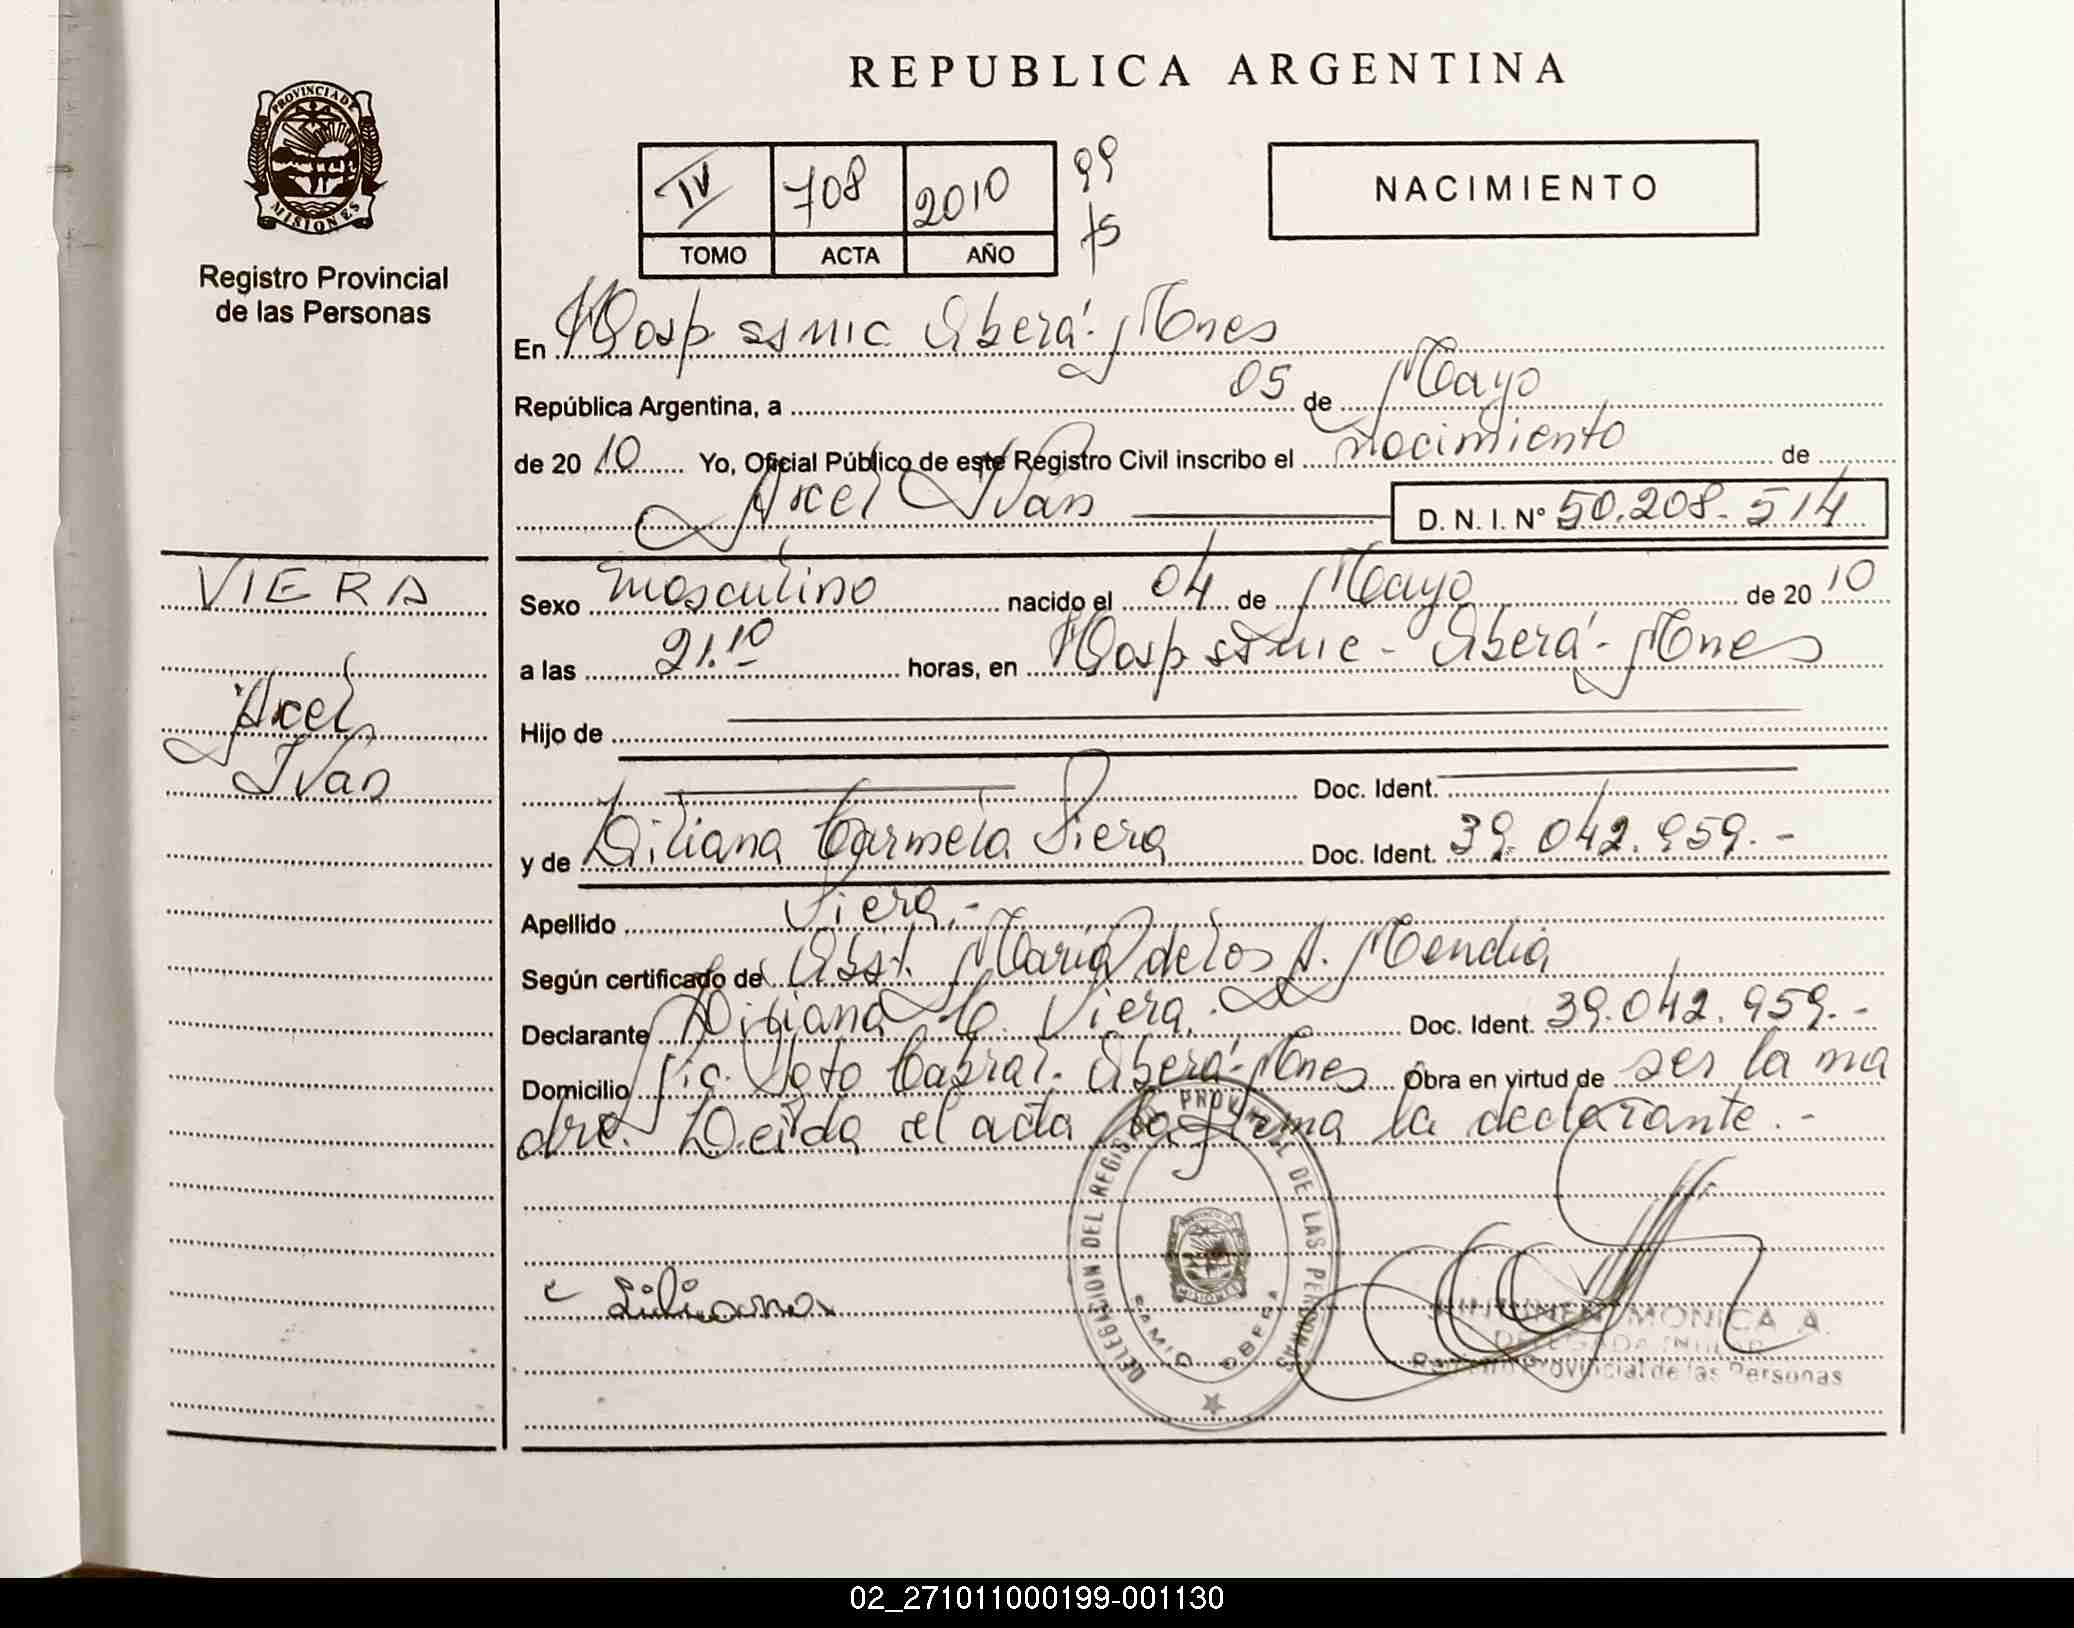 REPUBLICA ARGENTINA
PROVINCIA DE
MISIONES
Registro Provincial
de las Personas
IV 708 2010 99
TOMO ACTA AÑO
NACIMIENTO
En Hosp Oberá - Mnes
República Argentina, a 05 de Mayo
de 20 10 Yo, Oficial Público de este Registro Civil inscribo el nacimiento de
Axel Ivan D. N. I. N° 50.208.514
VIERA
Axel
Ivan
Sexo masculino nacido el 04 de Mayo de 20 10
a las 21.10 horas, en Hosp Oberá - Mnes
Hijo de
Doc. Ident.
y de Liliana Carmela Viera Doc. Ident. 39.042.959.-
Apellido Viera.-
Según certificado de Obst. María de los A. Mendia
Declarante Liliana C. Viera. Doc. Ident. 39.042.959.-
Domicilio Cabral. Oberá - Mnes Obra en virtud de ser la ma
dre. Leida el acta la firma la declarante.-
DELEGACION DEL REGISTRO PROVINCIAL DE LAS PERSONAS
OBERA
Liliana
MONICA A.
Registro Provincial de las Personas
02_271011000199-001130